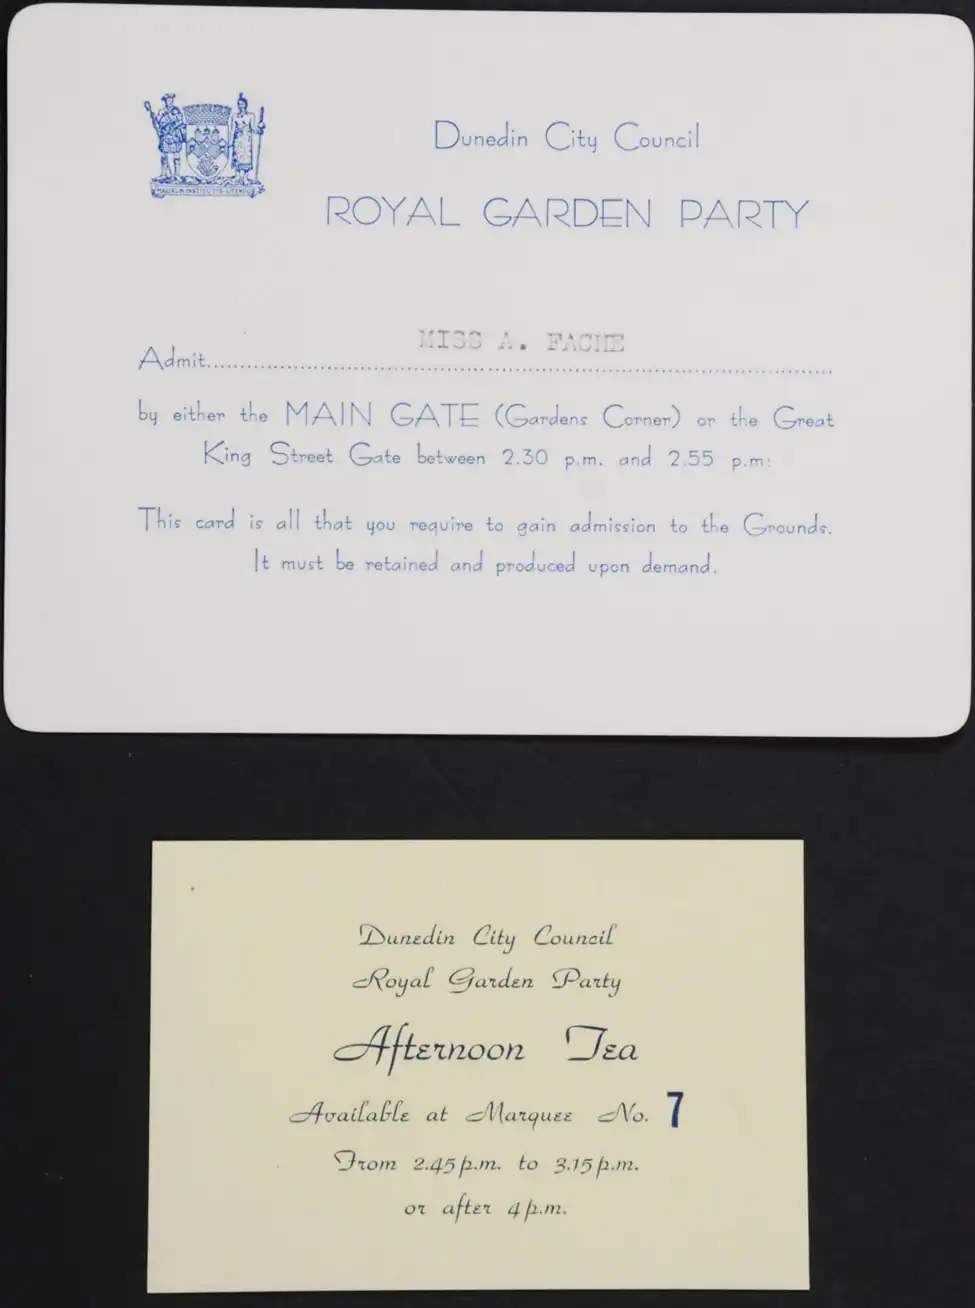 Dunedin City Council
ROYAL GARDEN PARTY
MISS A. FACHE
Admit
by either the MAIN GATE (Gardens Corner) or the Great
King Street Gate between 2.30 p.m. and 2.55 p.m:
This card is all that you require to gain admission to the Grounds.
It must be retained and produced upon demand.
Dunedin City Council
Royal Garden Party
Afternoon Tea
Available at Marquee No. 7
From 2.45 p.m. to 3.15 p.m.
or after 4 p.m.